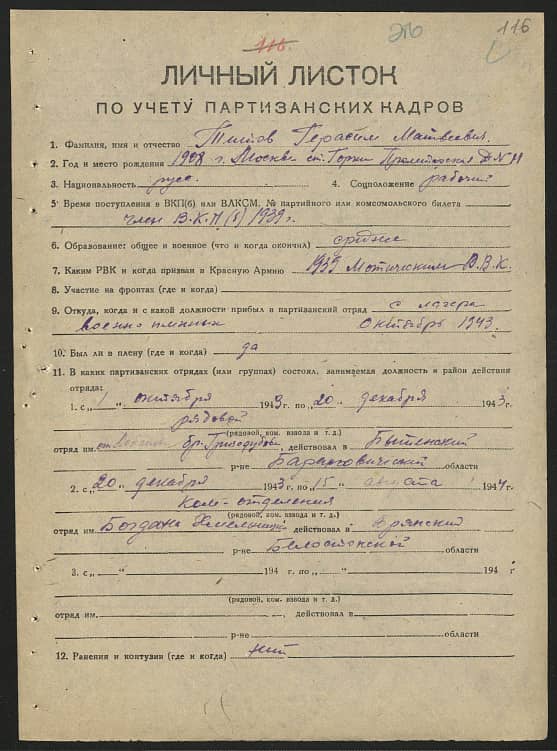 116
116
ЛИЧНЫЙ ЛИСТОК
ПО УЧЕТУ ПАРТИЗАНСКИХ КАДРОВ
1. Фамилия, имя и отчество Титов Герасим Матвеевич
2. Год и место рождения 1908 г. Москва ст. Горки Пролетарская Д № 11
3. Национальность русс. 4. Соцположение рабочий
5. Время поступления в ВКП(б) или ВЛКСМ, № партийного или комсомольского билета
член В.К.П(б) 1939 г.
6. Образование: общее и военное (что и когда окончил) средне
7. Каким РВК и когда призван в Красную Армию 1939 Р.В.К.
8. Участие на фронтах (где и когда)
9. Откуда, когда и с какой должности прибыл в партизанский отряд с лагера
военно пленных октябрь 1943.
10. Был ли в плену (где и когда) да
11. В каких партизанских отрядах (или группах) состоял, занимаемая должность и район действия
отряда:
1. с „1 октября 1943 г. по „20 декабря 1943 г.
рядовой
(рядовой, ком. взвода и т. д.)
отряд им. бр. Гризодубовы, действовал в Бытенский
р-не Барановический области
2. с „20" декабря 1943 г. по „15" августа 1944 г.
Ком-отделения
(рядовой, ком. взвода и т. д.)
отряд им. Богдана Хмельницк действовал в
р-не Белостокской области
3. с „ " 194 г. по „ " 194 г.
(рядовой, ком. взвода и т. д.)
отряд им. , действовал в
р-не области
12. Ранения и контузии (где и когда) нит